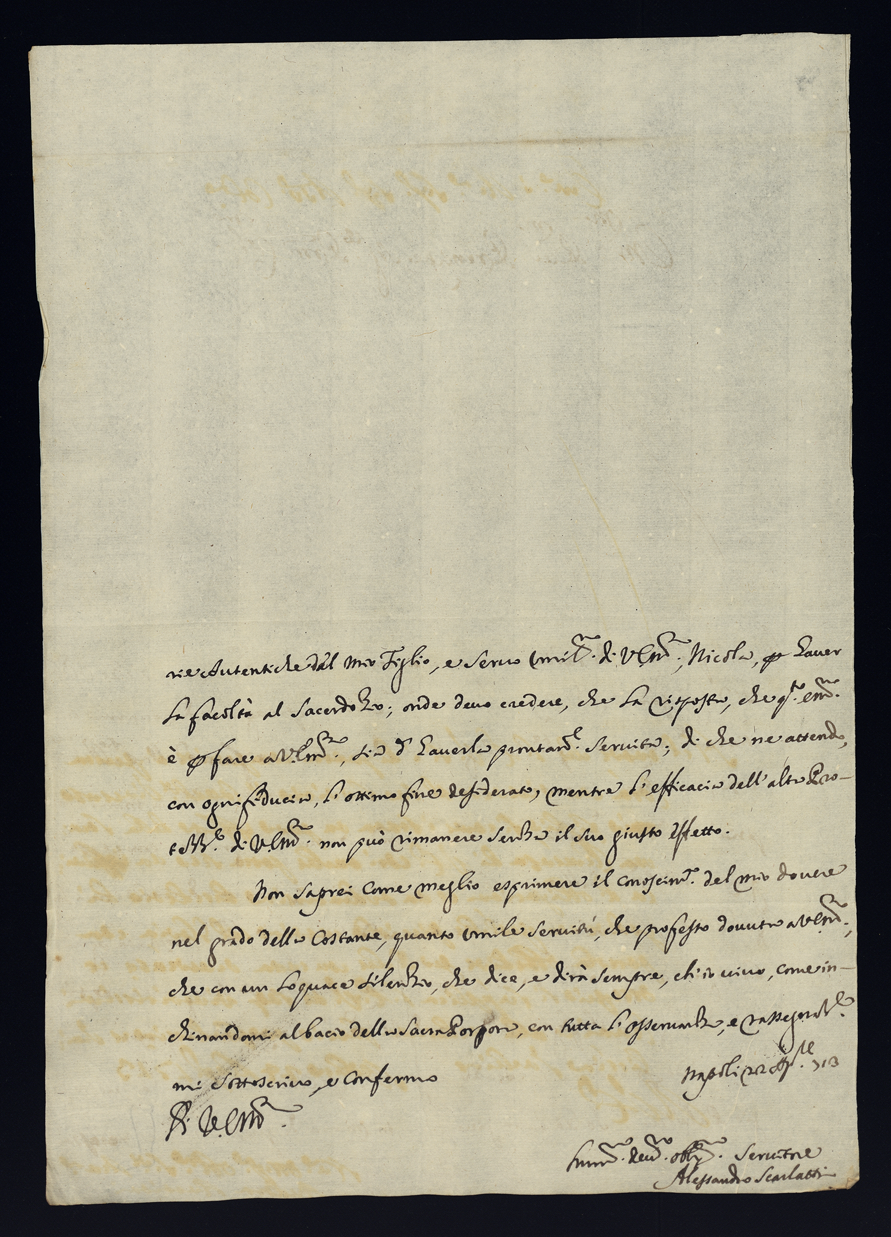 rie Autentiche dal Mio Figlio, e Servo Umil.mo di V. Em.za, Nicola, per haver
la facoltà al Sacerdozio; onde devo credere, che la risposta, che q.sto Em.mo
è per fare a V. Em.za, sia d'haverla prontam.te servita; di che ne attendo,
con ogni fiducia, l'ottimo fine desiderato, mentre l'efficacia dell'alto Pro-
tett.e di V. Em.za non può rimanere senza il suo giusto effetto.
Non saprei come meglio esprimere il conoscim.to del mio dovere
nel grado della Costante, quanto umile servitù, che professo dovuta a V. Em.za,
che con un loquace silenzio, che dice, e dirà sempre, ch'io vivo, come in-
chinandomi al bacio della Sacra Porpora, con tutta l'osservanza, e rassegnat.e
mi sottoscrivo, e confermo
Di V. Em.za
Napoli 22 713
Humil.mo dev.mo obblig.mo Servitore
Alessandro Scarlatti